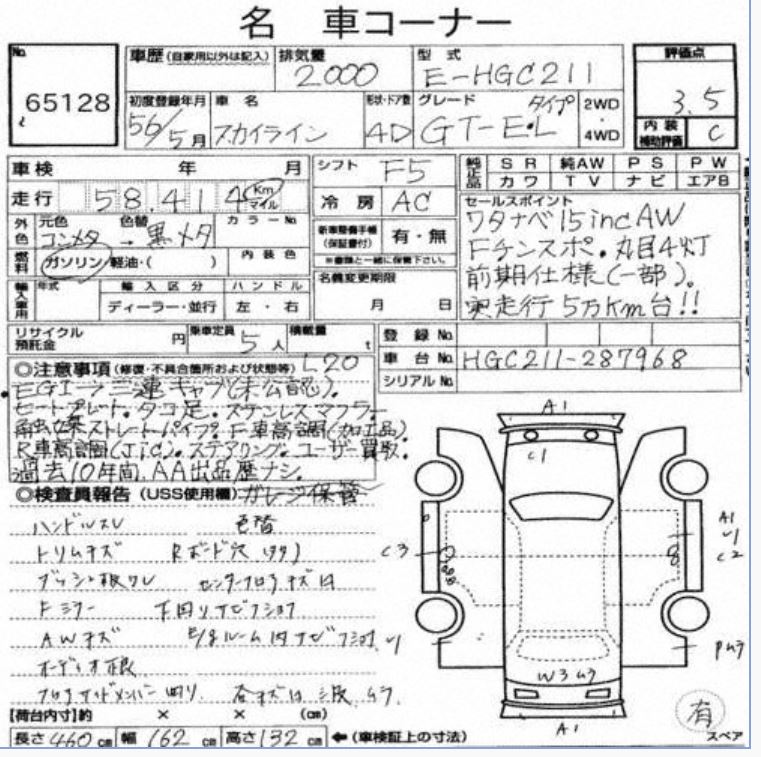 名 車コーナー
No. 65128
車歴 (自家用以外は記入)
排気量 2000
型式 E-HGC211
評価点 3.5
初度登録年月 56/5月
車名 スカイライン
形状・ドア数 4D
グレード タイプ GT-E・L
2WD・4WD
内装補助評価 C
車検 年 月
シフト F5
純正品 SR 純AW PS PW
カワ TV ナビ エアB
走行 58,414 Km マイル
冷房 AC
セールスポイント
ワタナベ15incAW
Fチンスポ。丸目4灯
前期仕様(一部)。
実走行5万Km台!!
外色 元色 コンメタ → 色替 黒メタ カラーNo
新車整備手帳(保証書付) 有・無
※書類と一緒に保管下さい。
燃料 ガソリン・軽油・( ) 内装色
名義変更期限 月 日
輸入車用 年式 輸入区分 ハンドル
ディーラー・並行 左・右
リサイクル預託金 円 乗車定員 5人 積載量 t
登録No.
車台No. HGC211-287968
シリアルNo.
◎注意事項(修復・不具合箇所および状態等) L20
EGI→三連キャブ(未公認)。
ヒートプレート。タコ足。ステンレスマフラー
ストレートパイプ。F車高調(加工品)
R車高調(J.i.C)。ステアリング。ユーザー買取。
過去10年間、AA出品歴ナシ。
◎検査員報告(USS使用欄) ガレージ保管
ハンドルスレ 色替
トリムキズ Rボード穴
センターフロアキズ
Fミラー 下回りサビ
AWキズ E/gルーム内サビ
オーディオ
フロアサイドメンバー
【荷台内寸】約 × × (cm)
長さ 460 cm 幅 162 cm 高さ 132 cm ←(車検証上の寸法)
A1
C1
P
C3
A1
U1
C2
U1
Pムラ
W3ムラ
A1
有
スペア